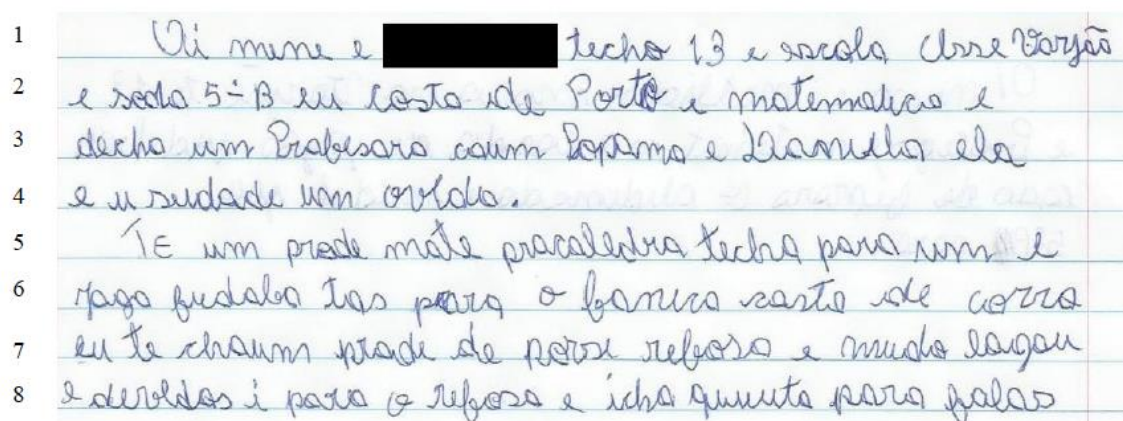 1 Oi mune e techo 13 e escola Clsse Varjão
2 e sodo 5ª B eu costa de Porto e matematica e
3 decho um Profesora caum Popamo e Dianulla ela
4 e u sudade um ovido.
5 TE um prode mate pracaledra techa para um e
6 jago fudabo tas para o fanura casta de corra
7 eu te chaum prade de porse refoso e mudo lagau
8 e develdas i para o refoso e icha quuuta para falas